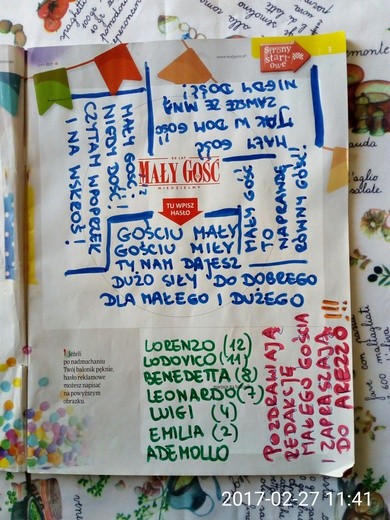 www.malygosc.pl
Strony
start-
owe
3
MAŁY GOŚĆ
NIGDY DOŚĆ!
ZAWSZE ZE MNĄ
JAK W DOM GOŚĆ!
MAŁY GOŚĆ
NIGDY DOŚĆ!
CZYTAM WPOPRZEK
I NA WSKROŚ!
90 LAT
MAŁY GOŚĆ
NIEDZIELNY
TU WPISZ
HASŁO
MAŁY GOŚĆ
TO
NAPRAWDĘ
RÓWNY GOŚĆ!
GOŚCIU MAŁY
GOŚCIU MIŁY
TY NAM DAJESZ
DUŻO SIŁY DO DOBREGO
DLA MAŁEGO I DUŻEGO
Jeżeli
po nadmuchaniu
Twój balonik pęknie,
hasło reklamowe
możesz napisać
na powyższym
obrazku.
LORENZO (12)
LODOVICO (11)
BENEDETTA (8)
LEONARDO (7)
LUIGI (4)
EMILIA (2)
ADEMOLLO
POZDRAWIAJĄ
REDAKCJĘ
MAŁEGO GOŚCIA
I ZAPRASZAJĄ
DO AREZZO!!!
2017-02-27 11:41